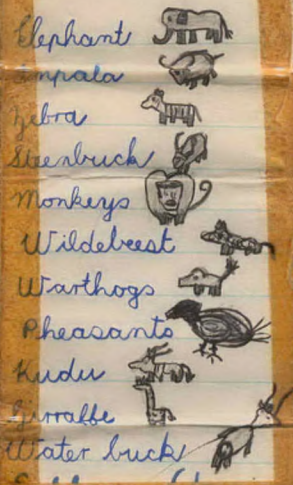 Elephant
Impala
Zebra
Steenbuck
Monkeys
Wildebeest
Warthogs
Pheasants
Kudu
Girraffe
Water buck